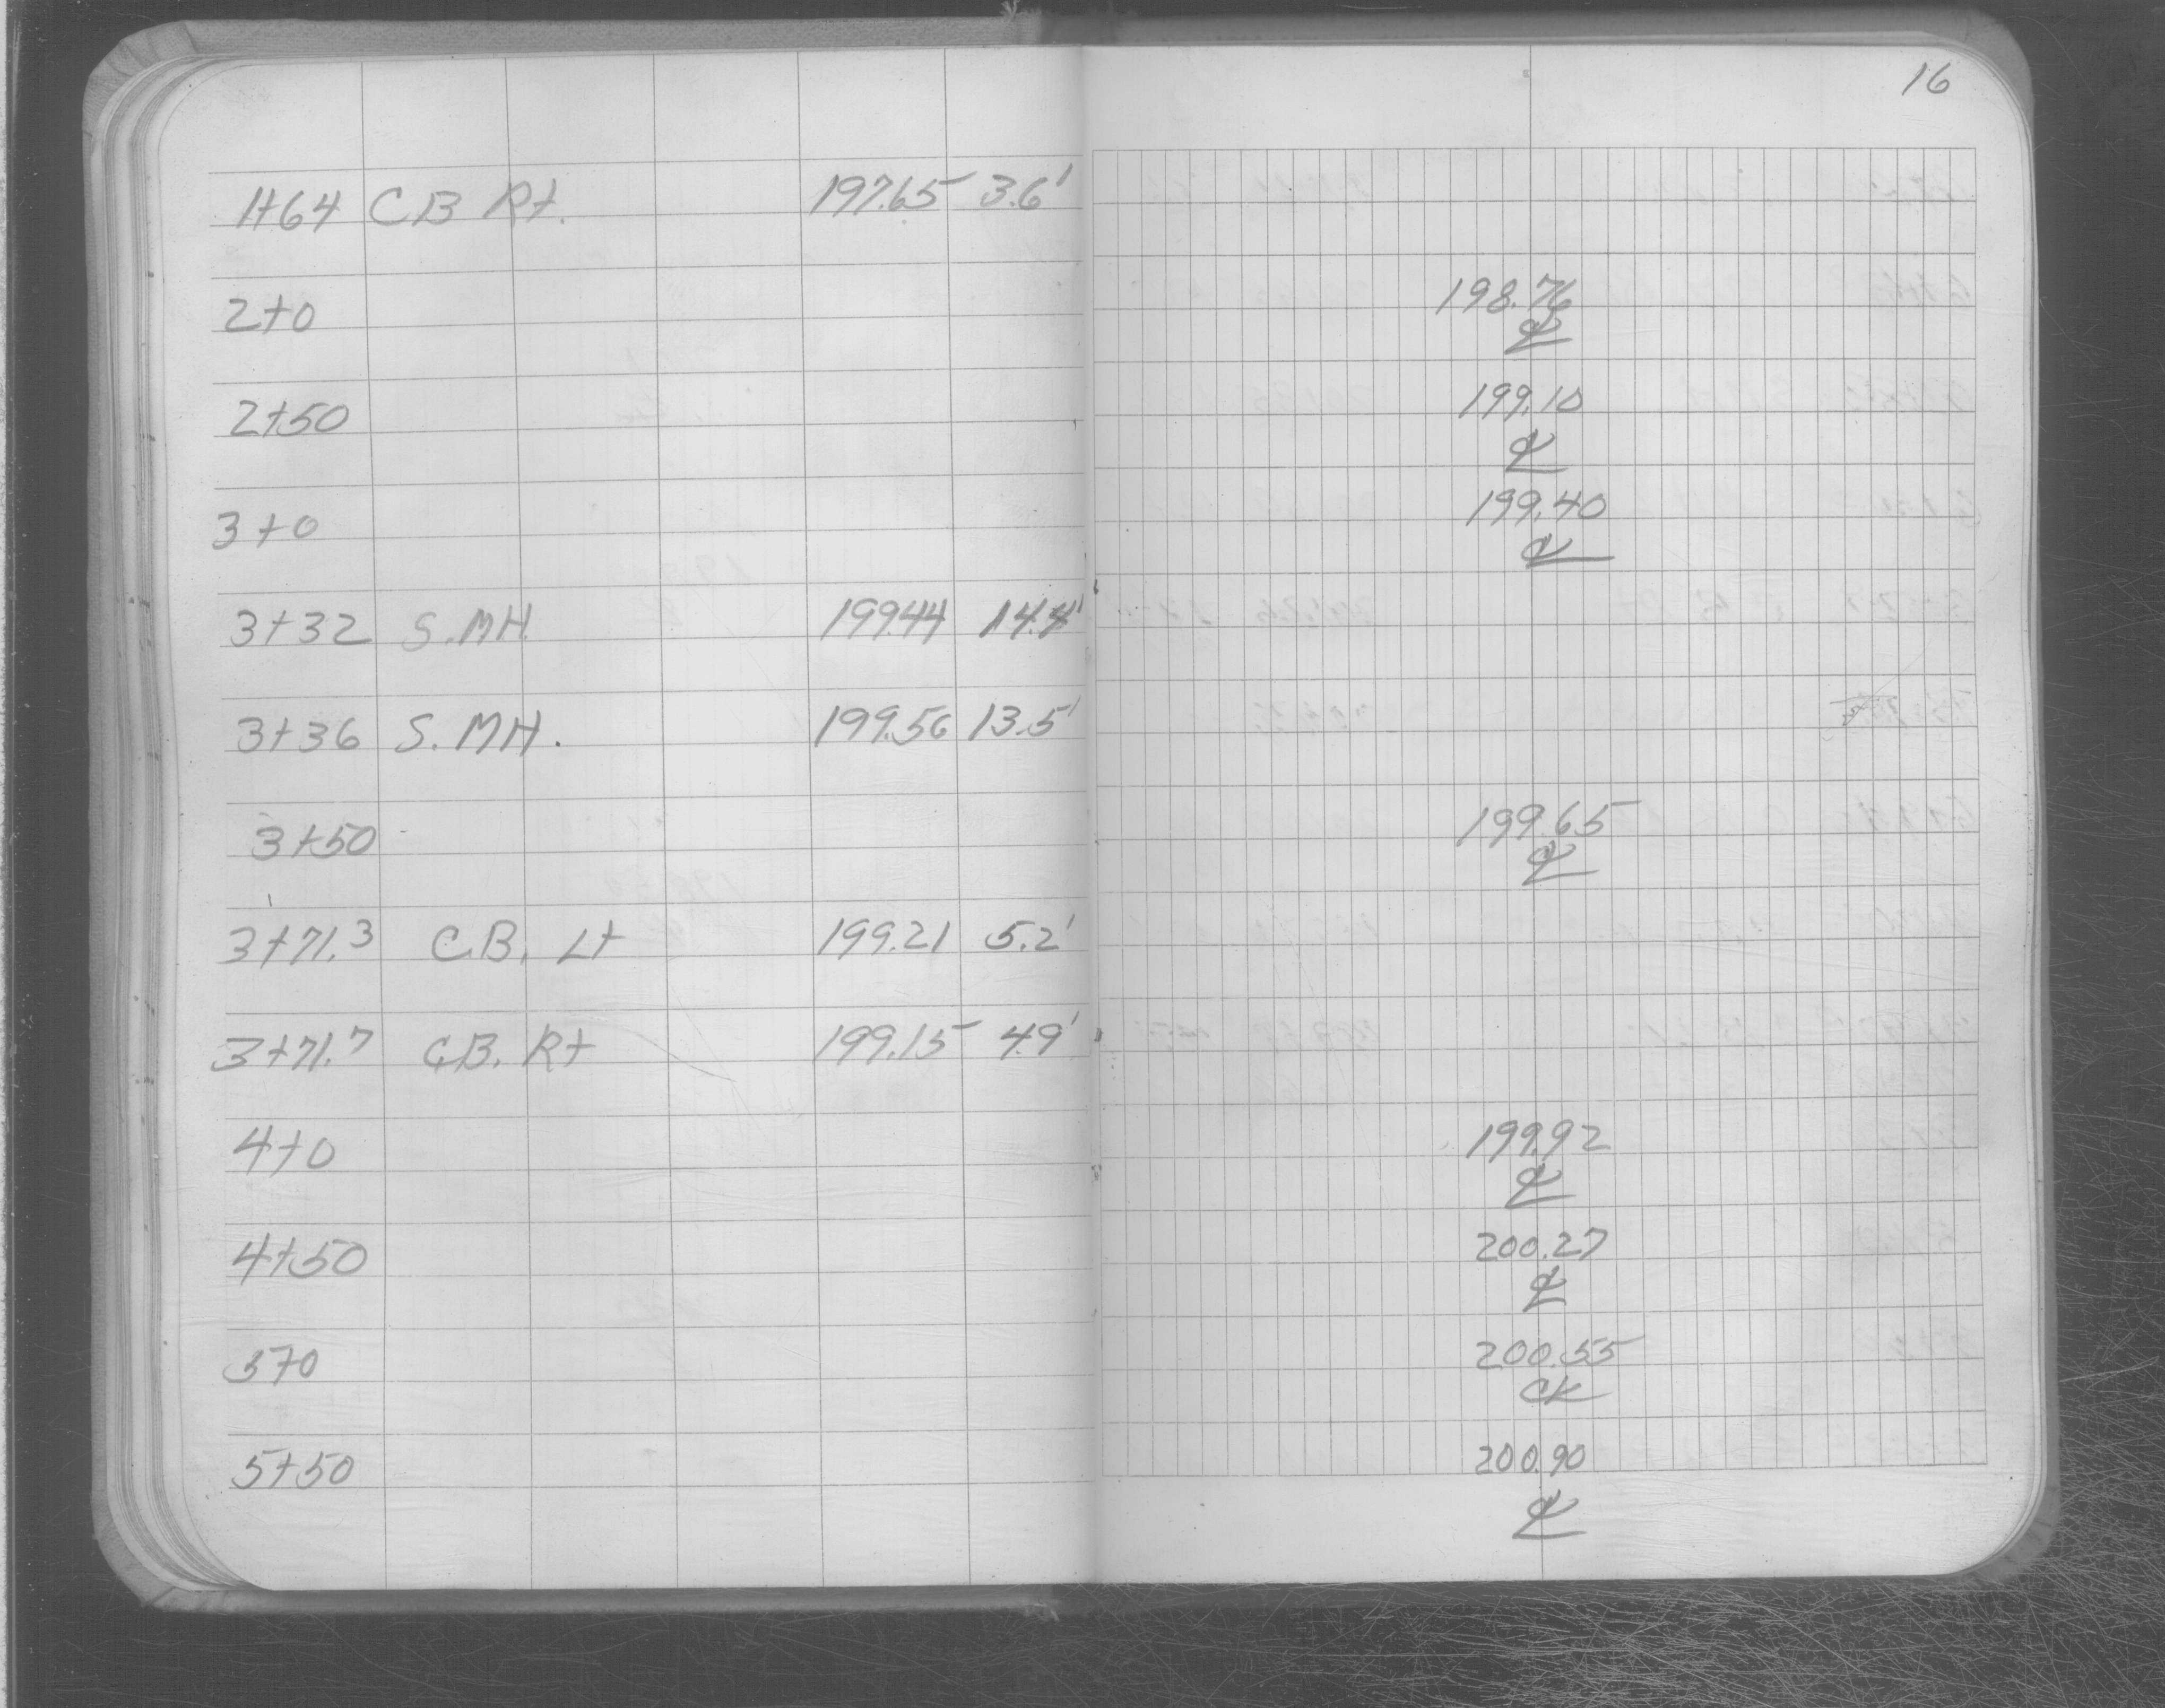 16
1+64 C B Rt. 197.65 3.6'
2+0 198.76
℄
2+50 199.10
℄
3+0 199.40
℄
3+32 S.MH. 199.44 14.4'
3+36 S.MH. 199.56 13.5'
3+50 199.65
℄
3+71.3 C.B. Lt 199.21 5.2'
3+71.7 C.B. Rt 199.15 4.9'
4+0 199.92
℄
4+50 200.27
℄
5+0 200.55
℄
5+50 200.90
℄